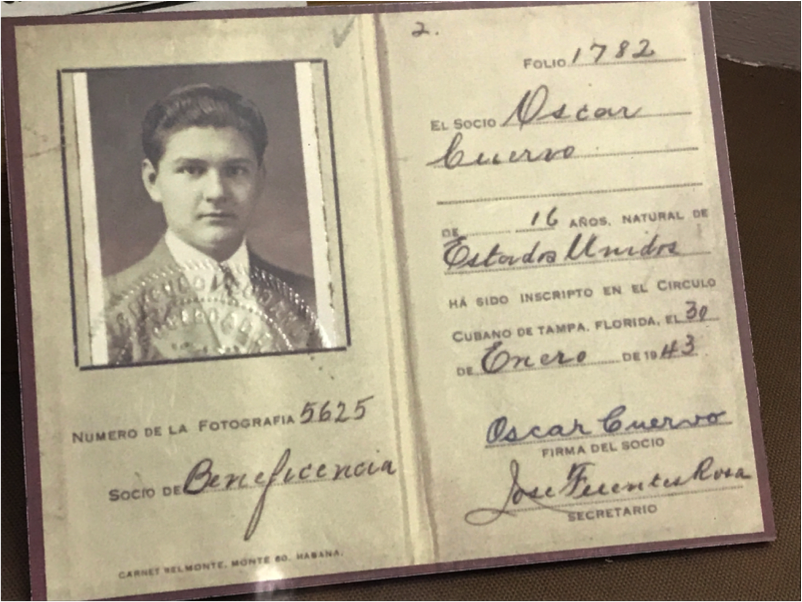 NUMERO DE LA FOTOGRAFIA 5625
SOCIO DE Beneficencia
CARNET BELMONTE, MONTE 60. HABANA.
2.
FOLIO 1782
EL SOCIO Oscar
Cuervo
DE 16 AÑOS, NATURAL DE
Estados Unidos
HÁ SIDO INSCRIPTO EN EL CIRCULO
CUBANO DE TAMPA, FLORIDA, EL 30
DE Enero DE 1943
Oscar Cuervo
FIRMA DEL SOCIO
Jose Fuentes Rosa
SECRETARIO